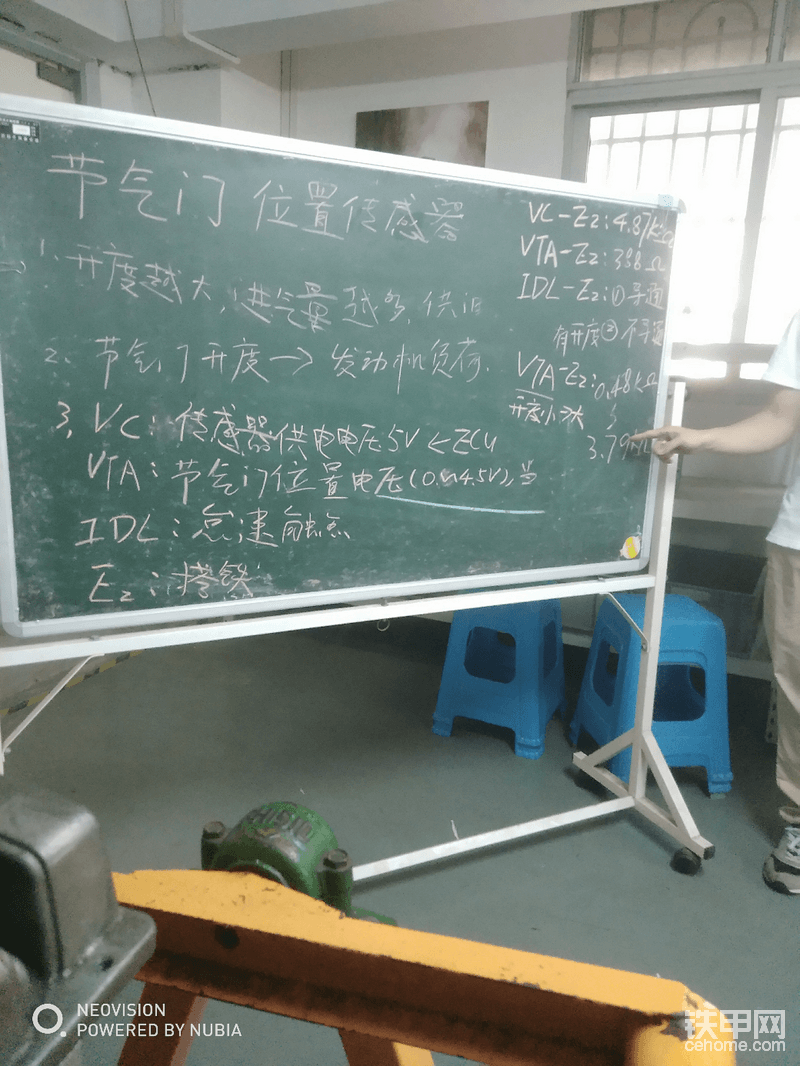 节气门位置传感器
1. 开度越大,进气量越多,供油
2、节气门开度→发动机负荷.
3, VC:传感器供电电压5V<ECU
VTA:节气门位置电压(0.4~4.5V),当
IDL:怠速触点
E2:搭铁
VC-E2:4.87kΩ
VTA-E2:338Ω
IDL-E2:① 导通
有开度② 不导通
VTA-E2:0.48kΩ
开度小→大
3.79
NEOVISION
POWERED BY NUBIA
铁甲网
cehome.com